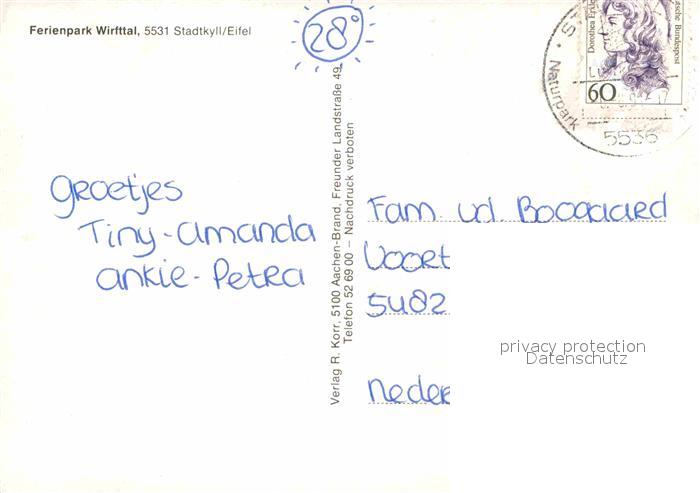 Ferienpark Wirfttal, 5531 Stadtkyll/Eifel
28°
Groetjes
Tiny-Amanda
Ankie-Petra
Verlag R. Korr, 5100 Aachen-Brand, Freunder Landstraße 49,
Telefon 52 69 00 – Nachdruck verboten
Fam. vd. Boogaard
Voort
5482
Neder
60
Deutsche Bundespost
Naturpark
5536
privacy protection
Datenschutz